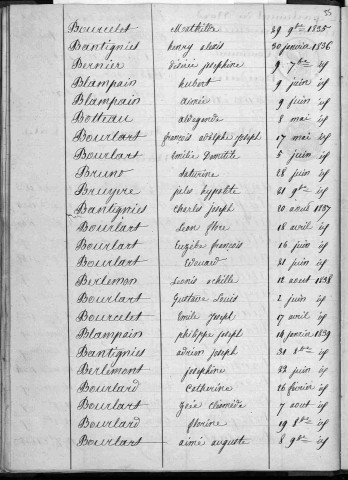 35
Bourcelot Mathilde 29 9bre 1835
Bantignies henry alexis 30 janvier 1836
Bernier désirée josephine 9 7bre id
Blampain hubert 9 juin id
Blampain aimée 9 juin id
Botteau aldegonde 8 mai id
Bourlart françois adolphe joseph 17 mai id
Bourlart Emilie Domitile 5 juin id
Bruno saturine 28 juin id
Bruyere jules hypolite 21 9bre id
Bantignies Charles joseph 20 aout 1837
Bourlart Leon flore 18 avril id
Bourlart Euzèbe françois 16 juin id
Bourlart Edouard 21 juin id
Berlemon Leonis achille 12 aout 1838
Bourlart Gustave Louis 2 juin id
Bourcelet Emile joseph 17 avril id
Blampain philippe joseph 14 janvier 1839
Bantignies adrien joseph 31 8bre id
Berlémont josephine 22 juin id
Bourlard Catherine 26 février id
Bourlart Zoée Cleomède 7 aout id
Bourlard florine 19 8bre id
Bourlart aimé auguste 8 9bre id